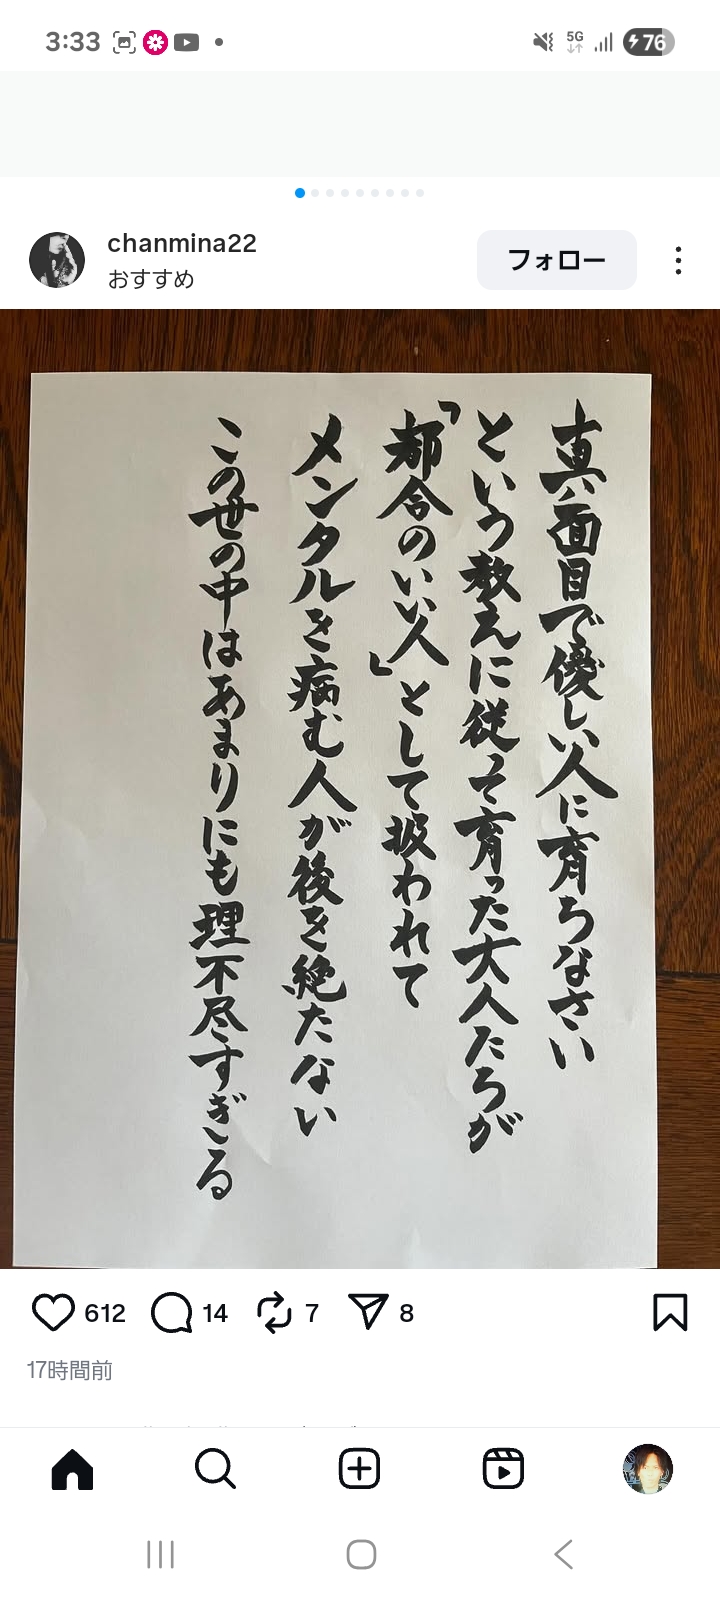 3:33
5G
76
chanmina22
おすすめ
フォロー
真面目で優しい人に育ちなさい
という教えに従って育った大人たちが
「都合のいい人」として扱われて
メンタルを病む人が後を絶たない
この世の中はあまりにも理不尽すぎる
612
14
7
8
17時間前